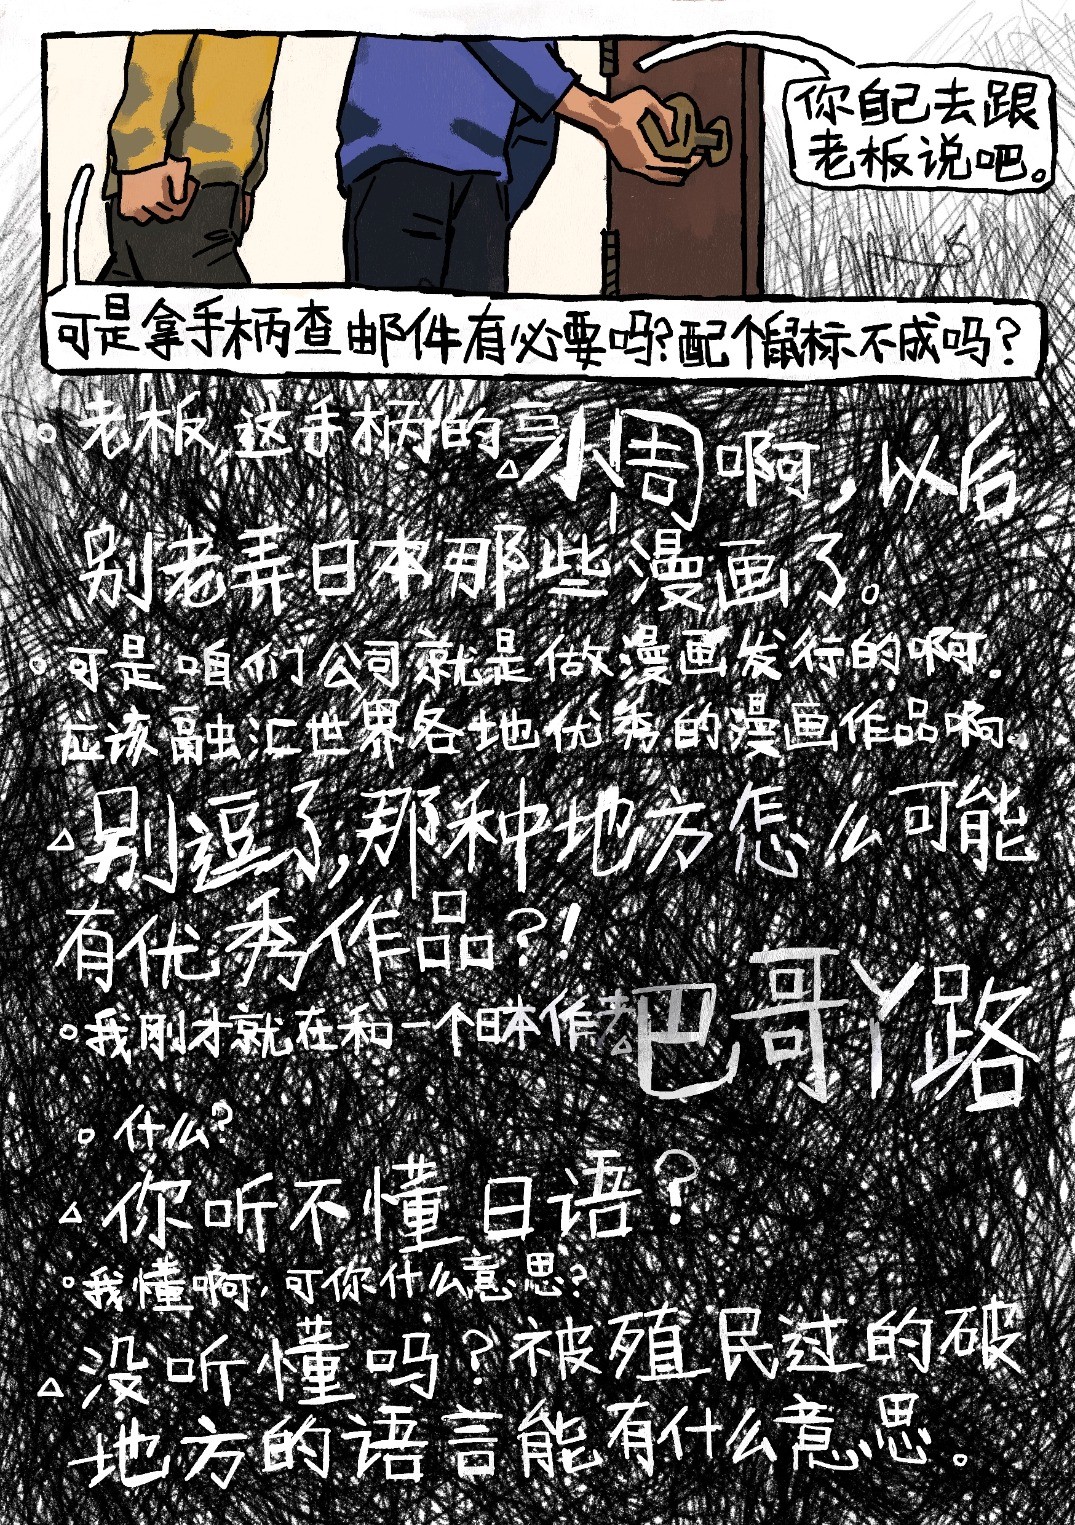 你自己去跟
老板说吧。
可是拿手柄查邮件有必要吗?配个鼠标不成吗?
。老板,这手柄的
△小周啊,以后
别老弄日本那些漫画了。
。可是咱们公司就是做漫画发行的啊。
应该融汇世界各地优秀的漫画作品啊。
△别逗了,那种地方怎么可能
有优秀作品?!
。我刚才就在和一个日本作者
△巴哥丫路
。什么?
△你听不懂日语?
。我懂啊,可你什么意思?
△没听懂吗?被殖民过的破
地方的语言能有什么意思。